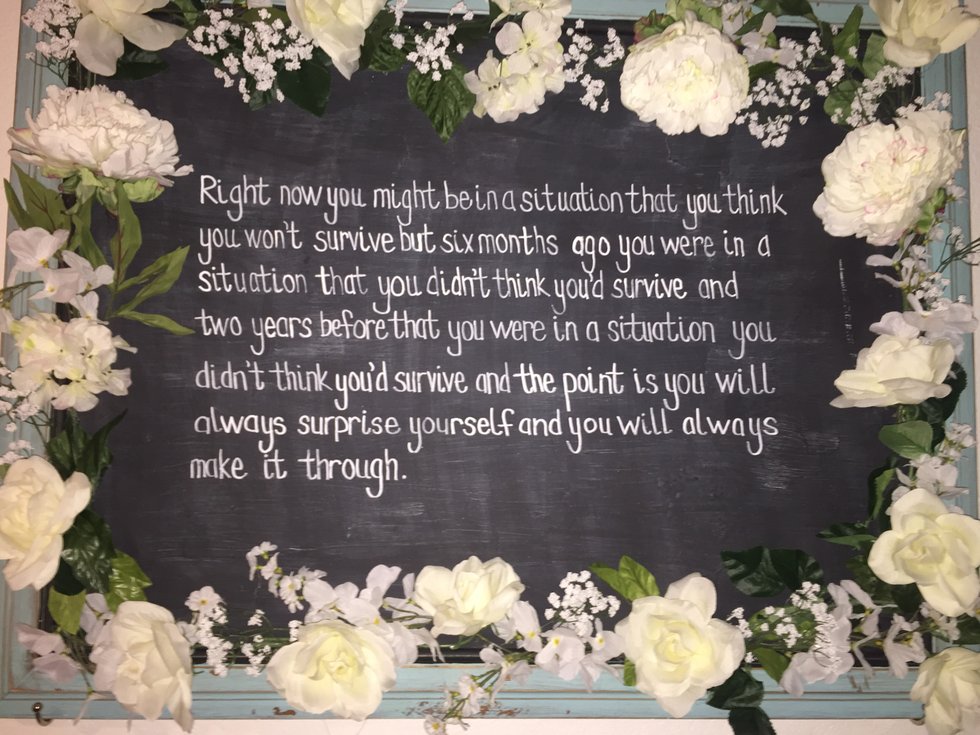 Right now you might be in a situation that you think
you won't survive but six months ago you were in a
situation that you didn't think you'd survive and
two years before that you were in a situation you
didn't think you'd survive and the point is you will
always surprise yourself and you will always
make it through.